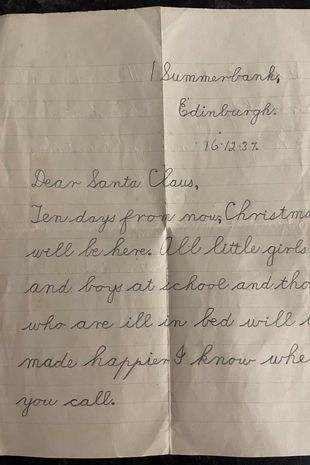 1 Summerbank,
Edinburgh.
16.12.37.
Dear Santa Claus,
Ten days from now, Christma
will be here. All little girls
and boys at school and tho
who are ill in bed will
made happier I know whe
you call.